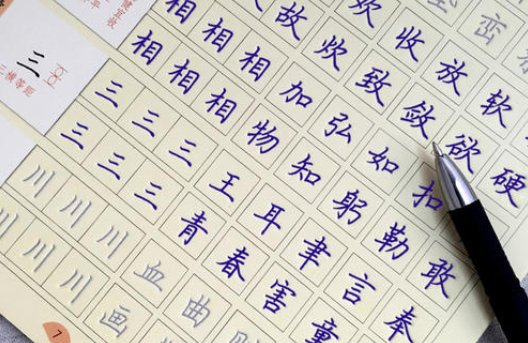 峦
欢 收 放 软
故 炊 致 敛 欲 硬
相 相 相 加 弘 如 扣
相 相 相 物 知 躬 勒 敢
三 三 三 王 耳 聿 言 奉
三 三 三 青 春 害 童
川 川 川 血 曲
川 川 川 画
三
三横等距
7